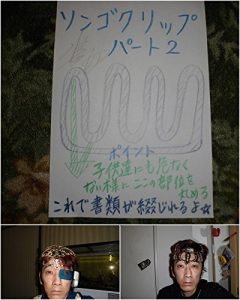 ソンゴクリップ
パート2
ポイント
子供達にも危なく
ない様にここの部位を
丸める
これで書類が綴じれるよ☆